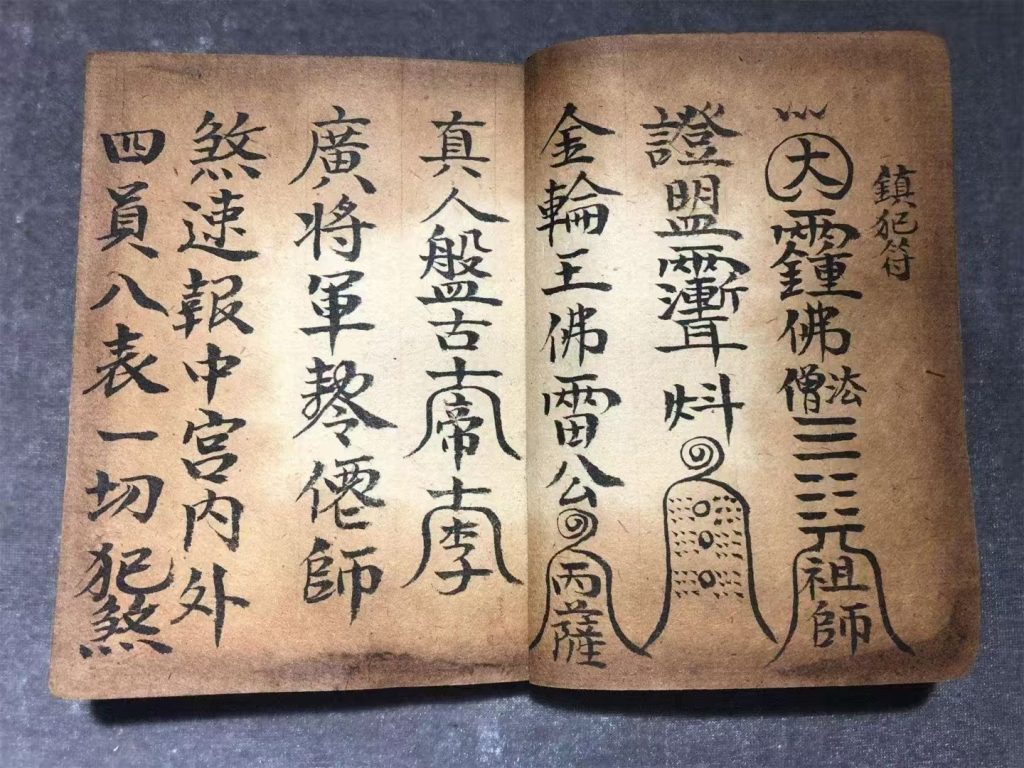 鎮犯符
大佛法僧三元祖師
證盟炓
金輪王佛雷公丙薩
真人盤古帝李
廣將軍僊師
煞速報中宮內外
四員八表一切犯煞